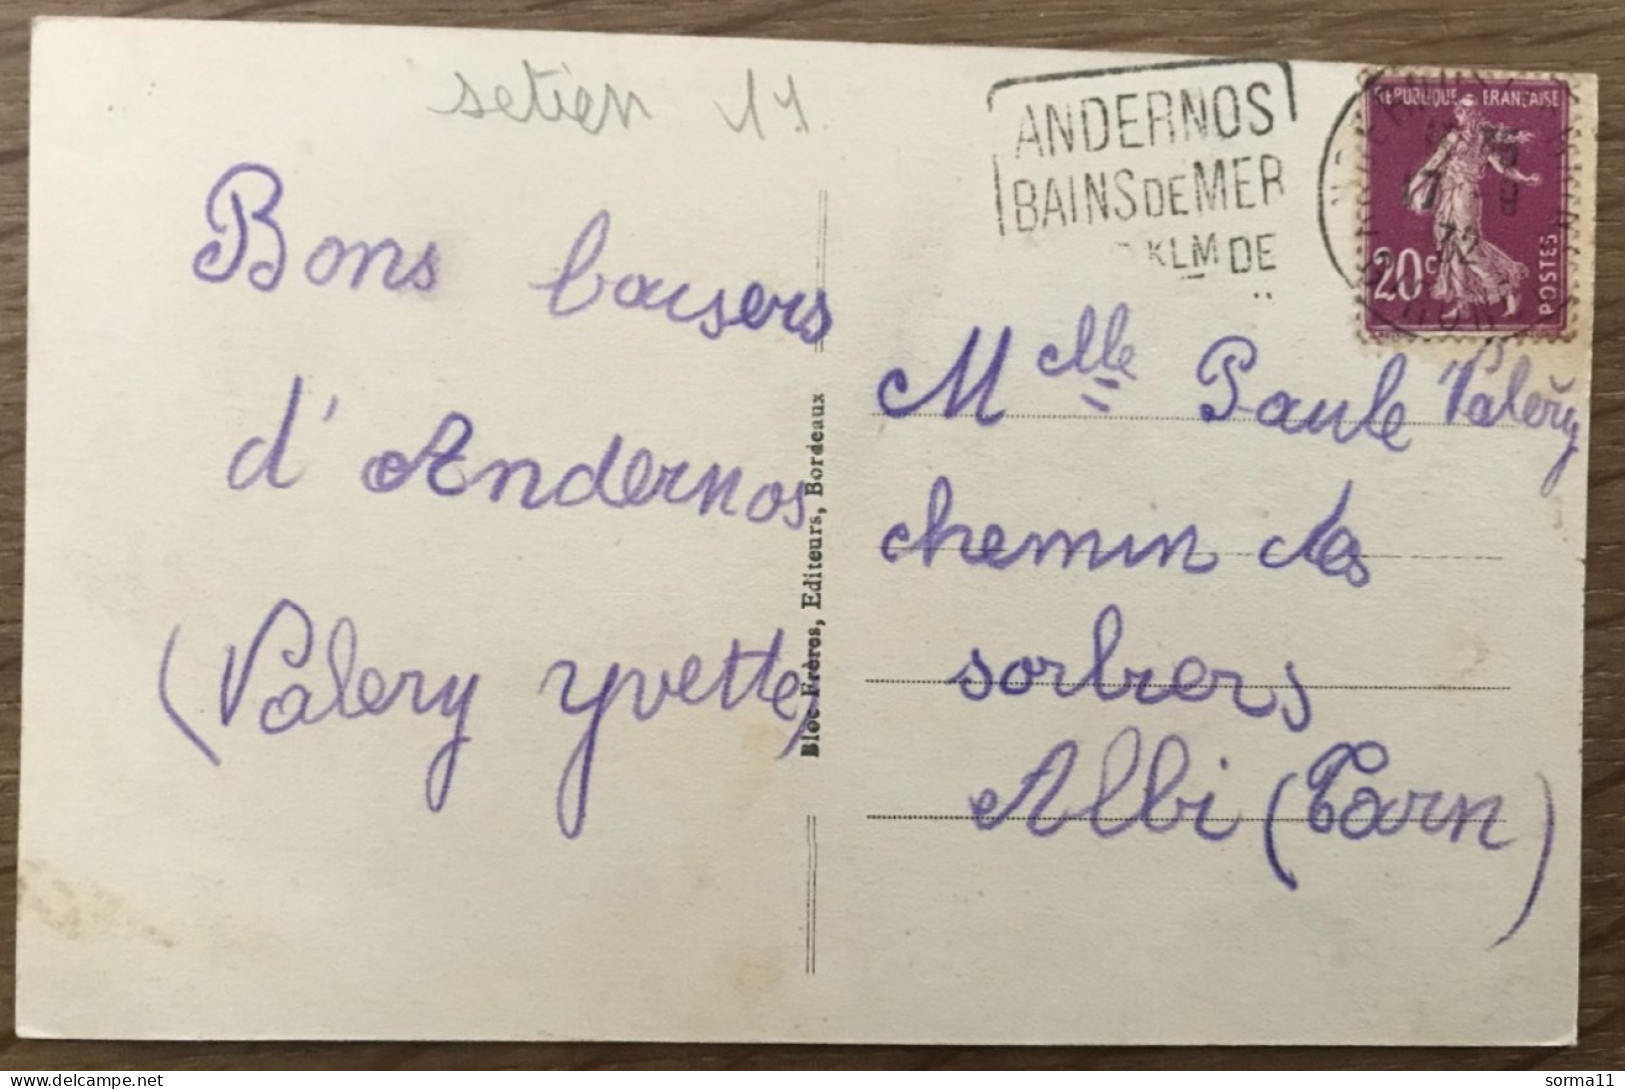 setien 11
ANDERNOS
BAINS DE MER
KLM DE
REPUBLIQUE FRANÇAISE
17 - 9
32
20c
POSTES
Bons baisers
d'Andernos
(Valery yvette)
Bloc Frères, Editeurs, Bordeaux
Melle Paule Valéry
chemin des
sorbiers
Albi (Tarn)
sorma11
www.delcampe.net